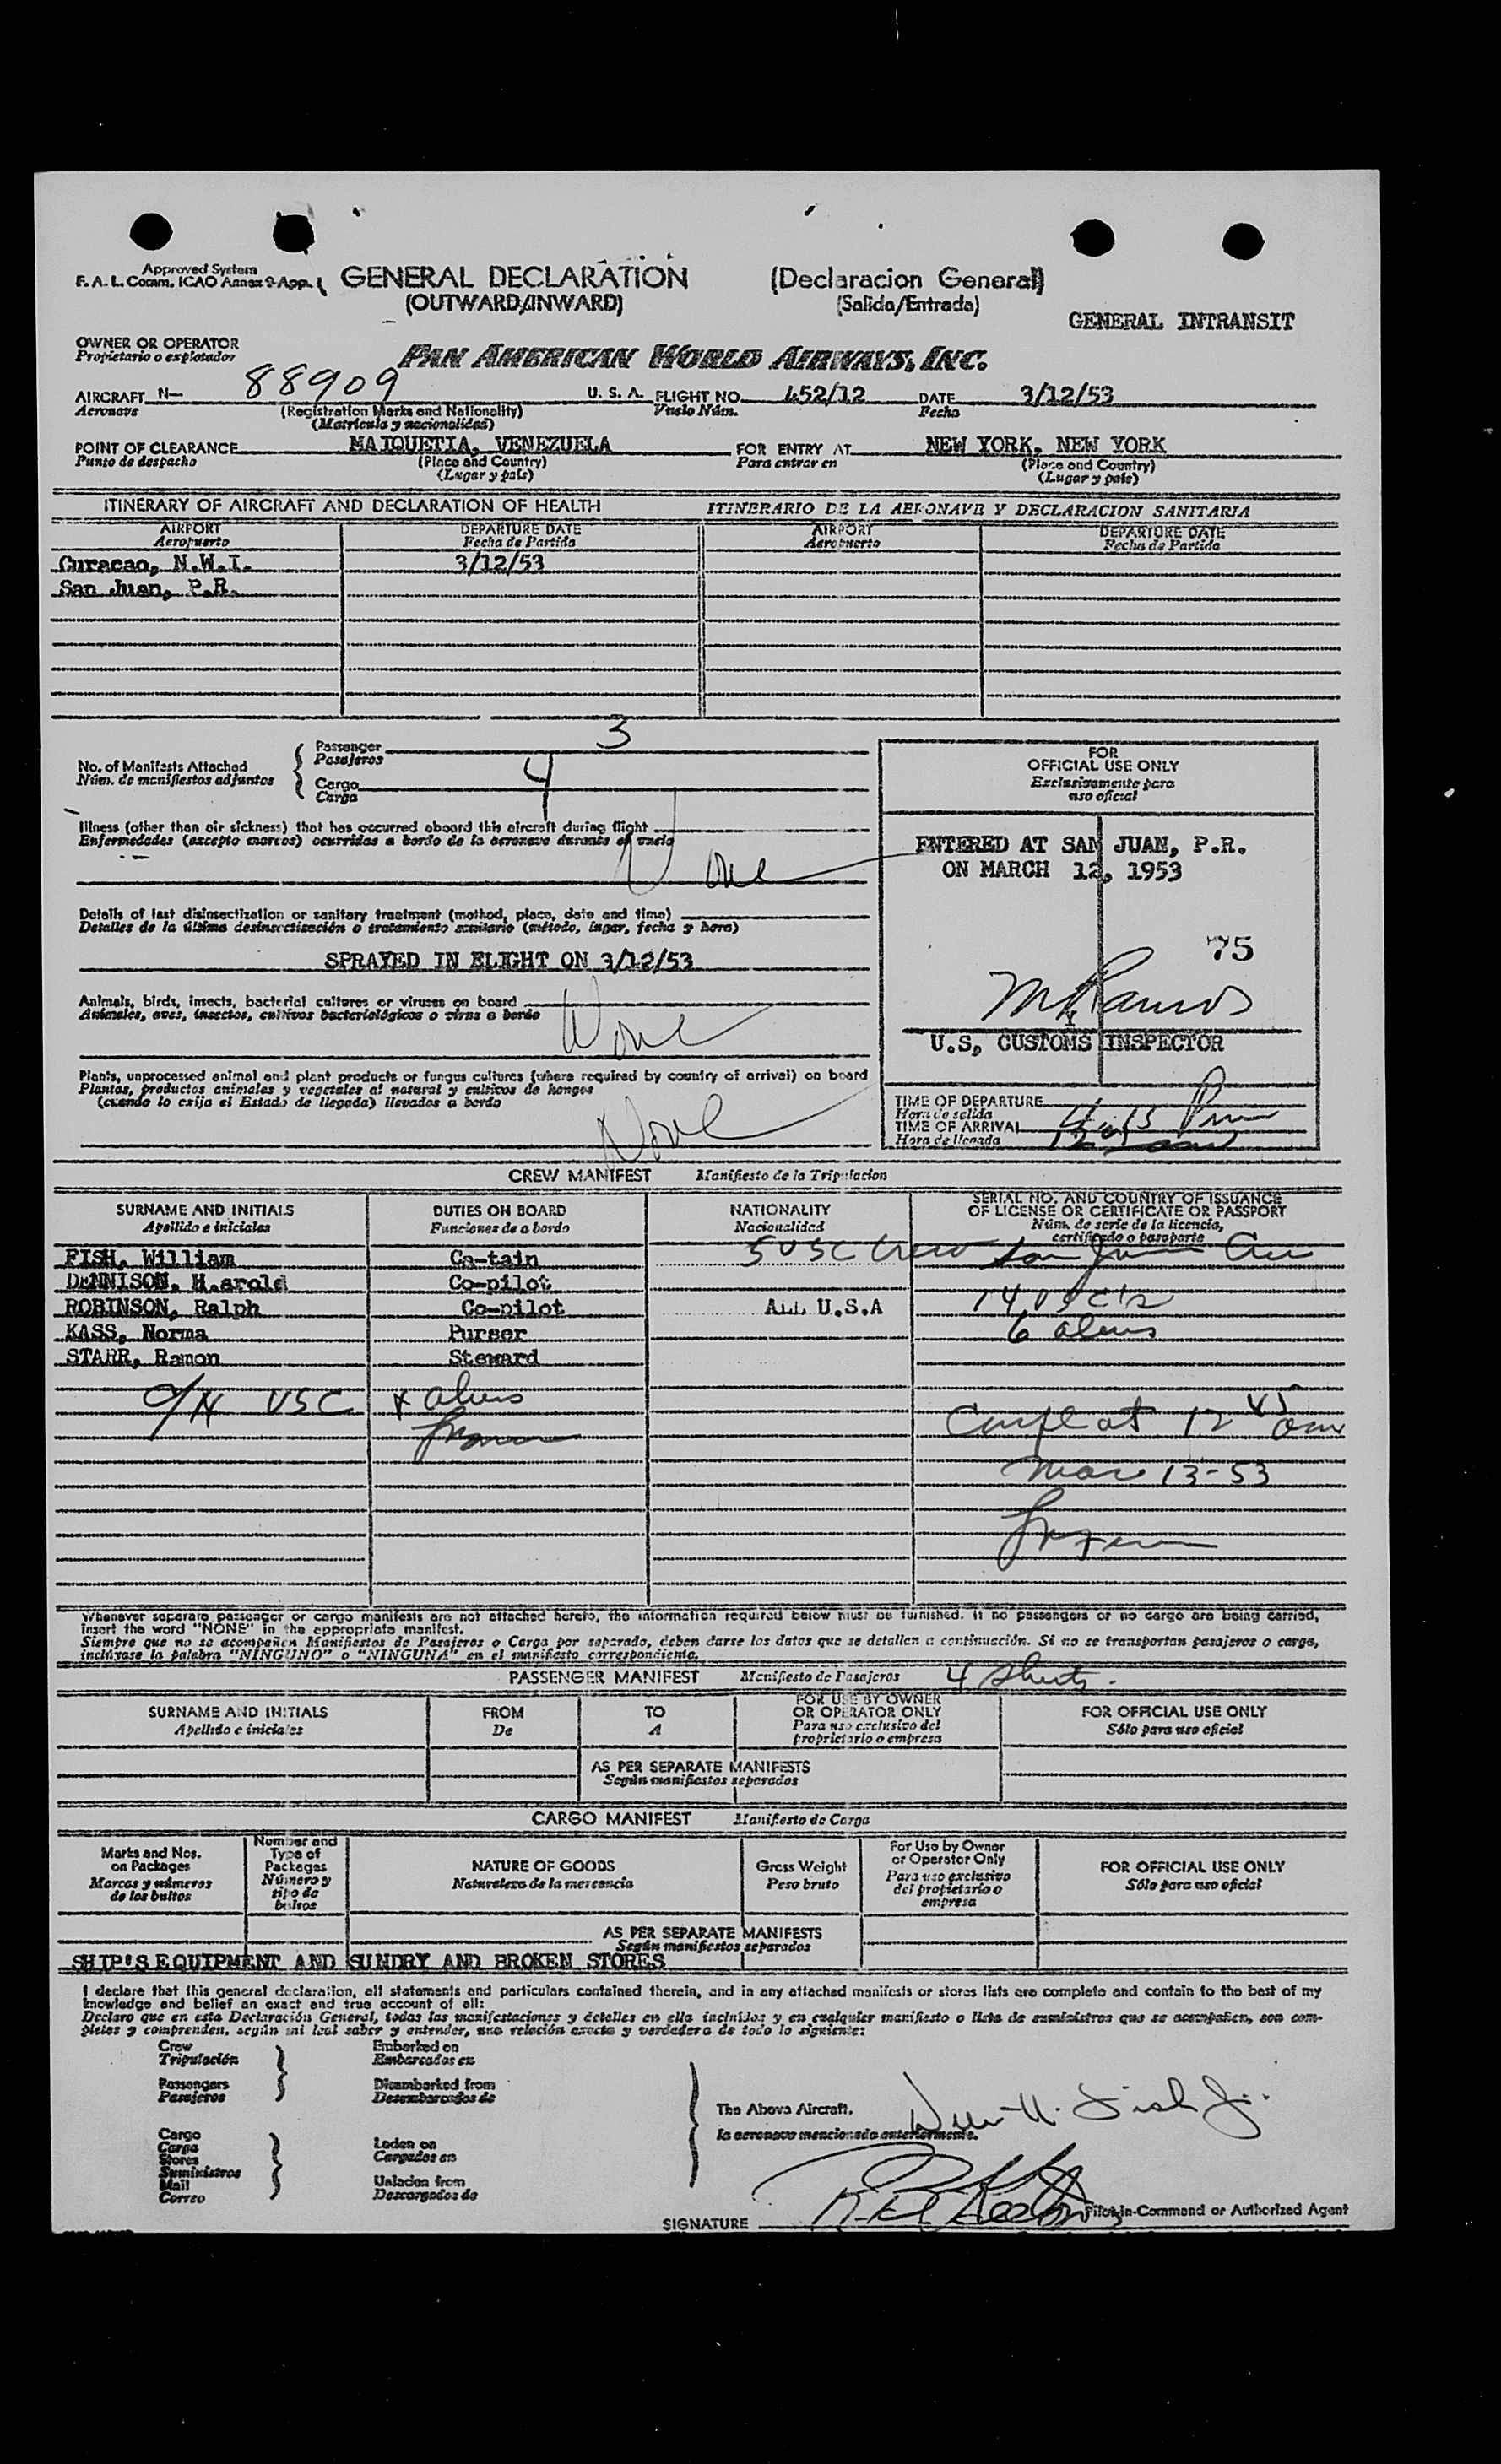 Approved System
F. A. L. Comm. ICAO Annex 9-App. 1
GENERAL DECLARATION (Declaracion General)
(OUTWARD/INWARD) (Salida/Entrada)
GENERAL INTRANSIT
OWNER OR OPERATOR
Propietario o explotador
PAN AMERICAN WORLD AIRWAYS, INC.
AIRCRAFT N— 88909 U. S. A. FLIGHT NO. 452/12 DATE 3/12/53
Aeronave (Registration Marks and Nationality) Vuelo Núm. Fecha
(Matricula y nacionalidad)
POINT OF CLEARANCE MAIQUETIA, VENEZUELA FOR ENTRY AT NEW YORK, NEW YORK
Punto de despacho (Place and Country) Para entrar en (Place and Country)
(Lugar y país) (Lugar y país)
ITINERARY OF AIRCRAFT AND DECLARATION OF HEALTH ITINERARIO DE LA AERONAVE Y DECLARACION SANITARIA
AIRPORT DEPARTURE DATE AIRPORT DEPARTURE DATE
Aeropuerto Fecha de Partida Aeropuerto Fecha de Partida
Curacao, N.W.I. 3/12/53
San Juan, P.R.
No. of Manifests Attached
Núm. de manifiestos adjuntos
Passenger 3
Pasajeros
Cargo 4
Carga
Illness (other than air sickness) that has occurred aboard this aircraft during flight
Enfermedades (excepto mareos) ocurridas a bordo de la aeronave durante el vuelo
None
Details of last disinsectization or sanitary treatment (method, place, date and time)
Detalles de la última desinsectización o tratamiento sanitario (método, lugar, fecha y hora)
SPRAYED IN FLIGHT ON 3/12/53
Animals, birds, insects, bacterial cultures or viruses on board
Animales, aves, insectos, cultivos bacteriológicos o virus a bordo
None
Plants, unprocessed animal and plant products or fungus cultures (where required by country of arrival) on board
Plantas, productos animales y vegetales al natural y cultivos de hongos
(cuando lo exija el Estado de llegada) llevados a bordo
None
FOR
OFFICIAL USE ONLY
Exclusivamente para
uso oficial
ENTERED AT SAN JUAN, P.R.
ON MARCH 12, 1953
75
M Ramos
U.S, CUSTOMS INSPECTOR
TIME OF DEPARTURE
Hora de salida
TIME OF ARRIVAL
Hora de llegada
CREW MANIFEST Manifiesto de la Tripulacion
SURNAME AND INITIALS DUTIES ON BOARD NATIONALITY SERIAL NO. AND COUNTRY OF ISSUANCE
OF LICENSE OR CERTIFICATE OR PASSPORT
Apellido e iniciales Funciones de a bordo Nacionalidad Núm. de serie de la licencia,
certificado o pasaporte
FISH, William Ca-tain 5 USC Crew San Juan
DENNISON, H.arold Co-pilot
ROBINSON, Ralph Co-pilot ALL U.S.A 14 USC
KASS, Norma Purser 6 aliens
STARR, Ramon Steward
USC 4 aliens
12 45 am
Mar 13-53
Whenever separate passenger or cargo manifests are not attached hereto, the information required below must be furnished. If no passengers or no cargo are being carried,
insert the word "NONE" in the appropriate manifest.
Siempre que no se acompañen Manifiestos de Pasajeros o Carga por separado, deben darse los datos que se detallan a continuación. Si no se transportan pasajeros o carga,
inclúyase la palabra "NINGUNO" o "NINGUNA" en el manifiesto correspondiente.
PASSENGER MANIFEST Manifiesto de Pasajeros 4 sheets.
SURNAME AND INITIALS FROM TO FOR USE BY OWNER
OR OPERATOR ONLY FOR OFFICIAL USE ONLY
Apellido e iniciales De A Para uso exclusivo del
propietario o empresa Sólo para uso oficial
AS PER SEPARATE MANIFESTS
Según manifiestos separados
CARGO MANIFEST Manifiesto de Carga
Marks and Nos.
on Packages
Marcas y números
de los bultos
Number and
Type of
Packages
Número y
tipo de
bultos
NATURE OF GOODS
Naturaleza de la mercancia
Gross Weight
Peso bruto
For Use by Owner
or Operator Only
Para uso exclusivo
del propietario o
empresa
FOR OFFICIAL USE ONLY
Sólo para uso oficial
AS PER SEPARATE MANIFESTS
Según manifiestos separados
SHIP'S EQUIPMENT AND SUNDRY AND BROKEN STORES
I declare that this general declaration, all statements and particulars contained therein, and in any attached manifests or stores lists are complete and contain to the best of my
knowledge and belief an exact and true account of all:
Declaro que en esta Declaración General, todas las manifestaciones y detalles en ella incluidos y en cualquier manifiesto o lista de suministros que se acompañen, son com-
pletas y comprenden, según mi leal saber y entender, una relación exacta y verdadera de todo lo siguiente:
Crew
Tripulación
Passengers
Pasajeros
Embarked on
Embarcados en
Disembarked from
Desembarcados de
Cargo
Carga
Stores
Suministros
Mail
Correo
Laden on
Cargados en
Unladen from
Descargados de
The Above Aircraft.
la aeronave mencionada anteriormente.
Fish Jr.
SIGNATURE
Pilot-in-Command or Authorized Agent